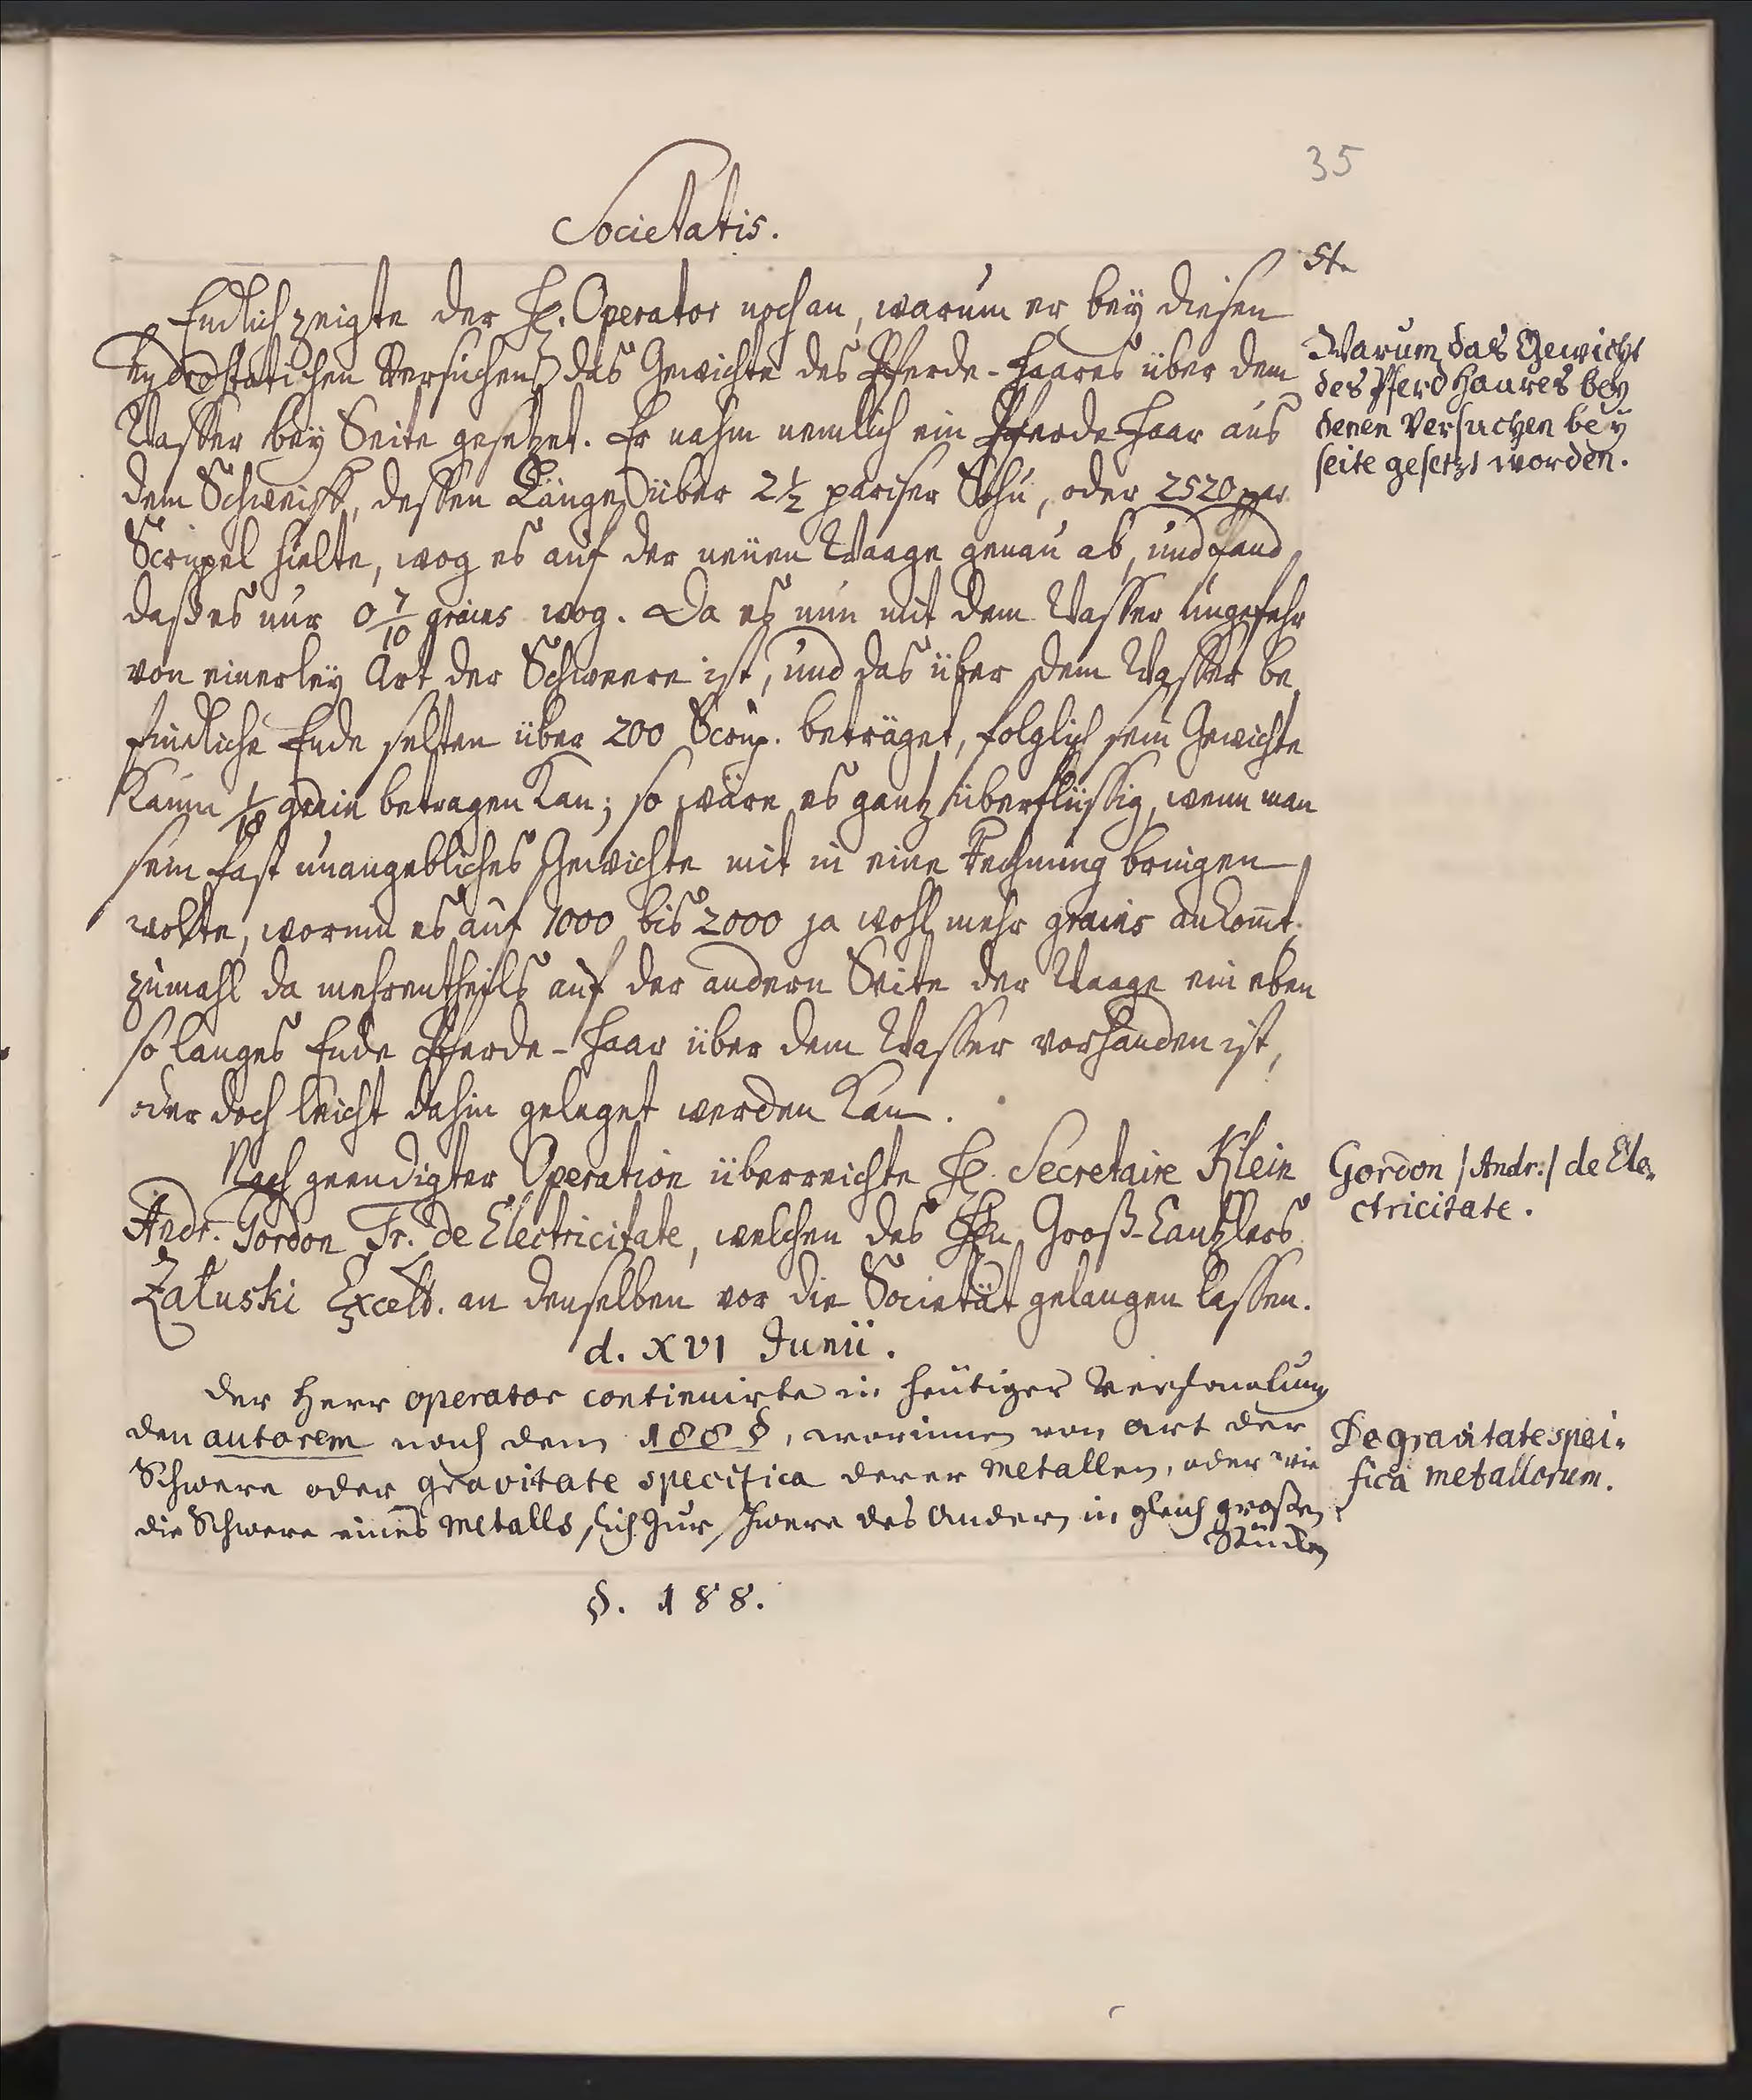 35
Societatis.
Endlich zeigte der H. Operator noch an, warum er bey diesen
hydrostatischen Versuchen das Gewichte des Pferde-Haares über dem
Wasser bey Seite gesetzet. Er nahm nemlich ein Pferde-Haar aus
dem Schweiff, dessen Länge über 2 1/2 pariser Schu, oder 2520 par
Scrupel hielte, wog es auf der neuen Waage genau ab, und fand
daß es nur 0 7/10 grains wog. Da es nun mit dem Wasser ungefehr
von einerley Art der Schweere ist, und das über dem Wasser be
findliche Ende selten über 200 Scrup. beträget, folglich sein Gewichte
kaum 1/18 grain betragen kan; so wäre es gantz überflüssig, wenn man
sein fast unangebliches Gewichte mit in eine Rechnung bringen
wolte, worinn es auf 1000 bis 2000 ja wohl mehr grains ankom̄t;
zumahl da mehrentheils auf der andern Seite der Waage ein eben
so langes Ende Pferde-Haar über dem Wasser vorhanden ist,
oder doch leicht dahin geleget werden kan.
Nach geendigter Operation überreichte H. Secretaire Klein
Andr. Gordon Tr. de Electricitate, welchen des Hn Groß-Cantzlers
Załuski Excell. an denselben vor die Societät gelangen lassen.
d. XVI Junii.
Der Herr operator continuirte in heutiger Versamlung
den autorem nach dem 188 §, worinnen von Art der
Schwere oder gravitate specifica derer Metallen, oder wie
die Schwere eines Metalls, sich zur schwere des andern in gleich großen
Stücken
§. 188.
St.
Warum das Gewicht
des Pferd Haares bey
denen Versuchen bey
seite gesetzt worden.
Gordon /Andr:/ de Ele-
ctricitate.
De gravitate speci-
fica metallorum.